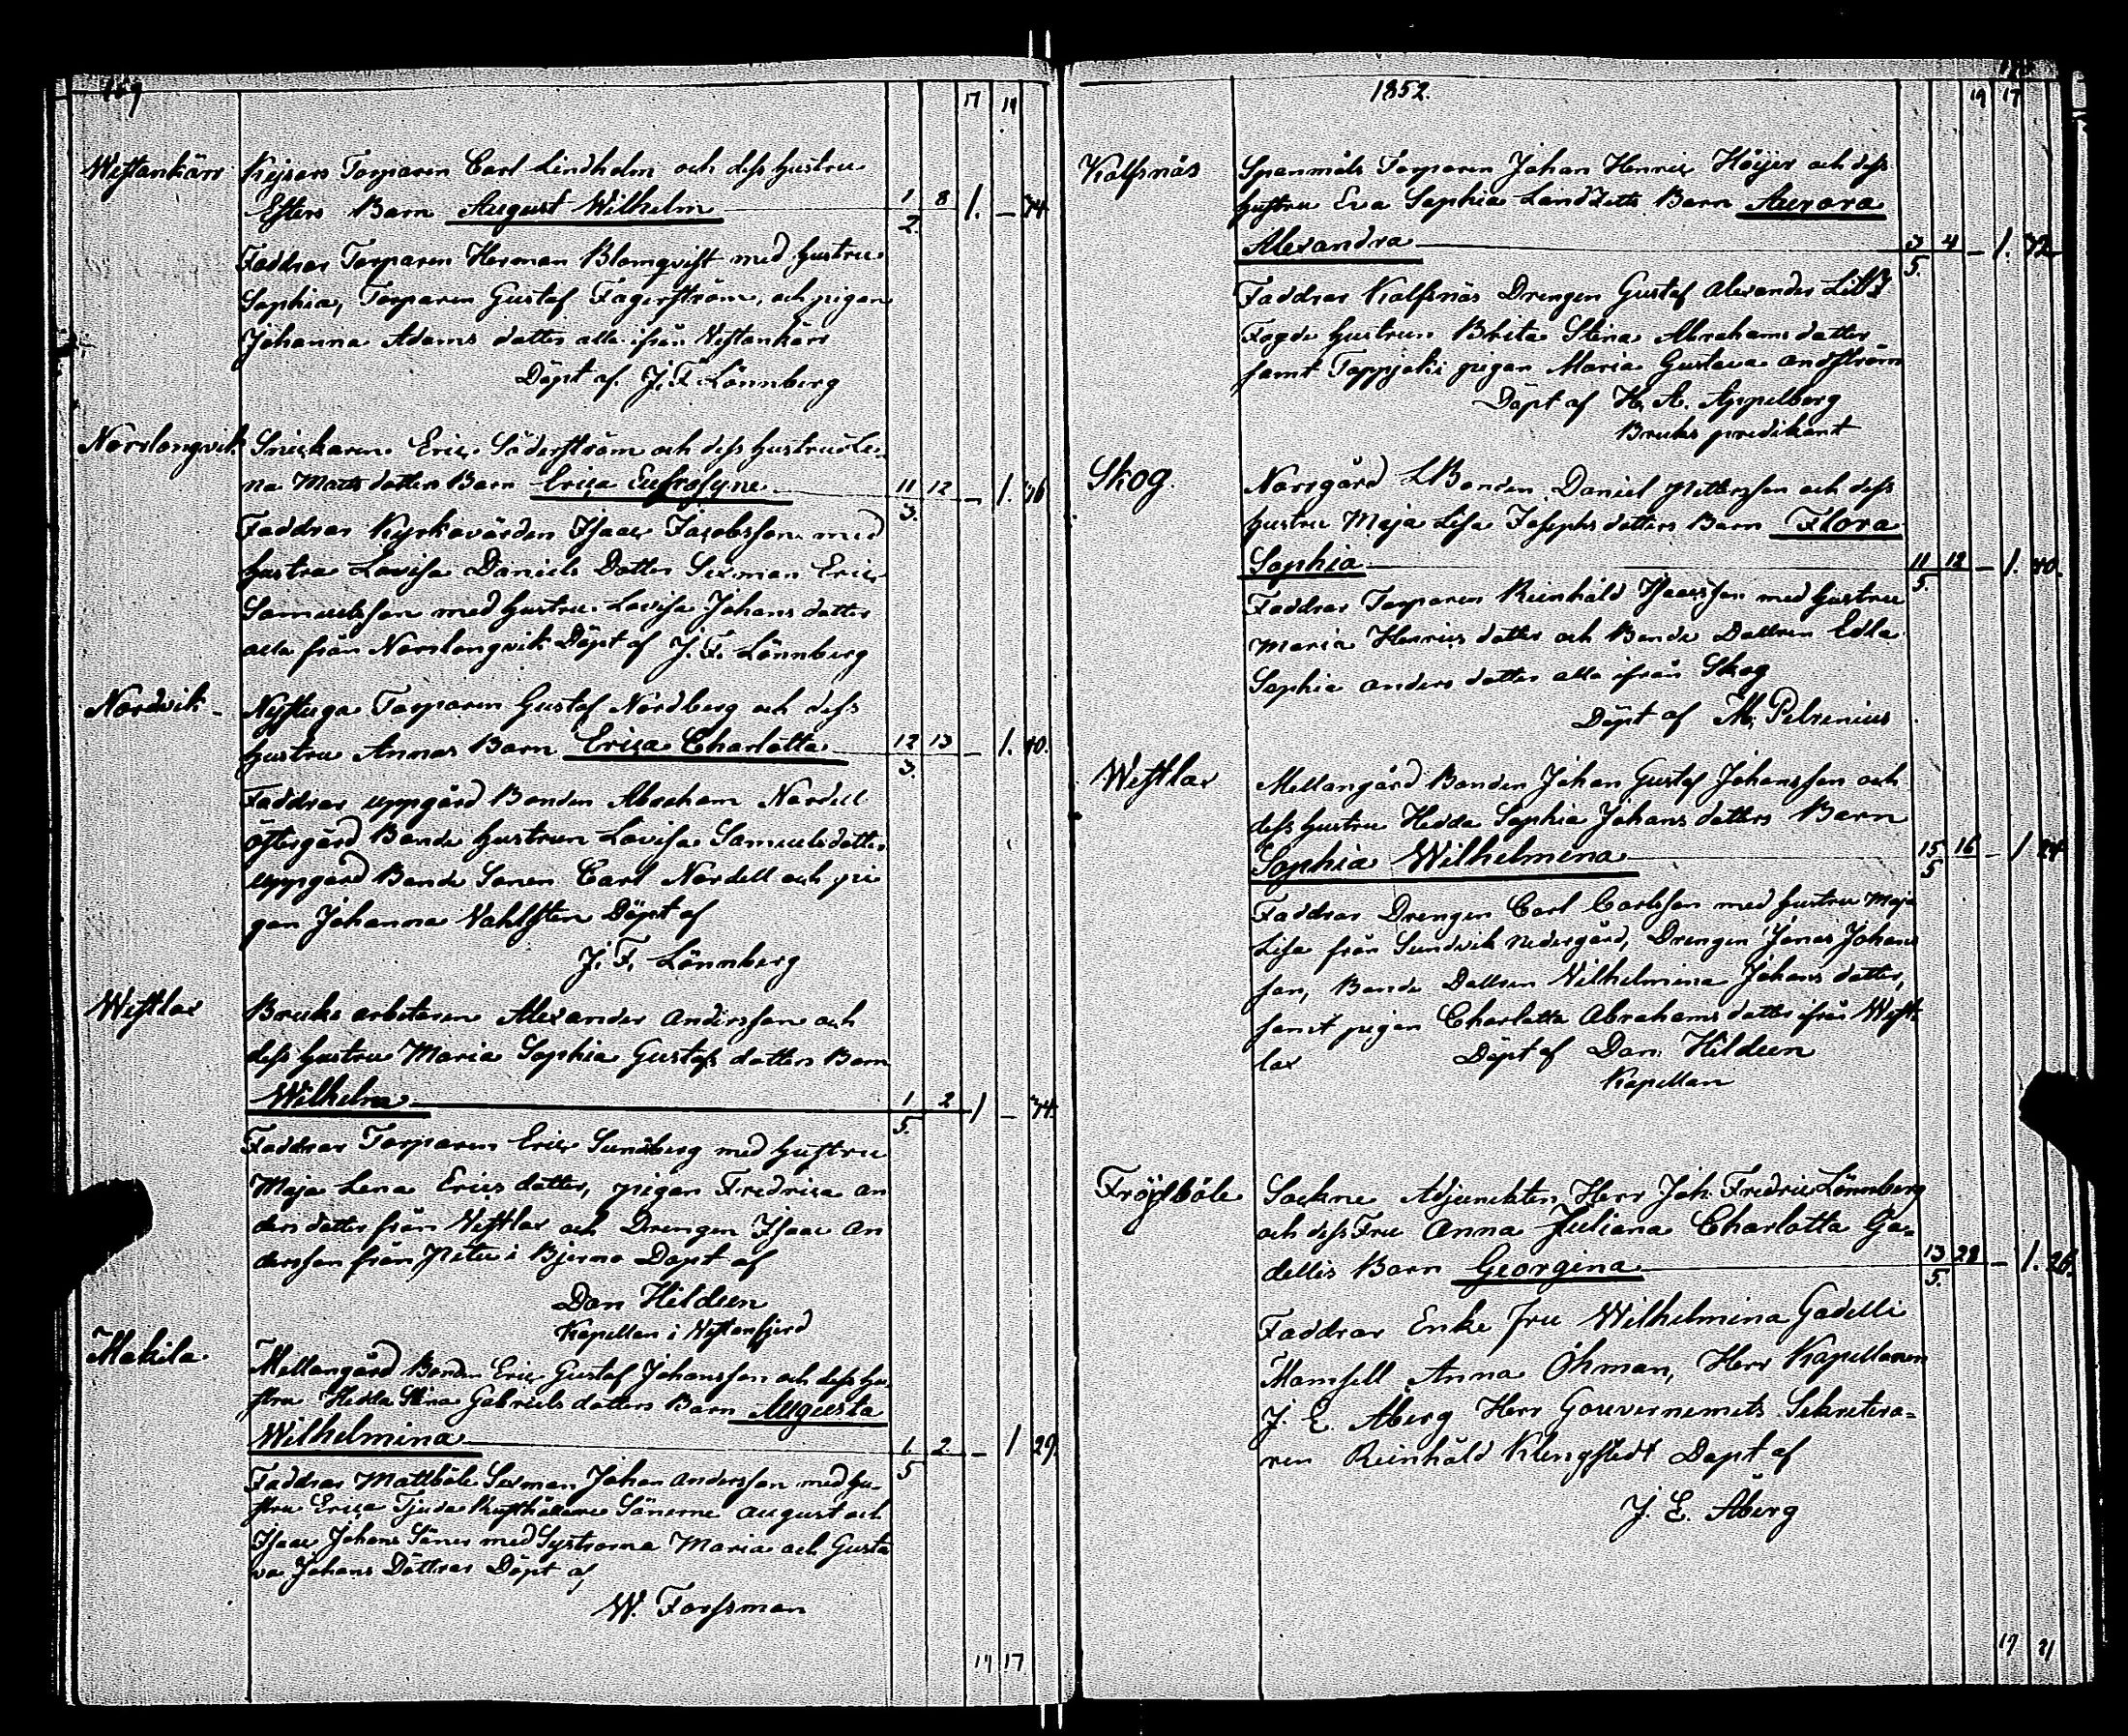 169 17 19
Westankärr Keisars Torparen Carl Lindholm och dess hustru
Esters Barn August Wilhelm 1/2. 8 1. – 24.
Faddrar Torparen Herman Blomqvist med hustru
Sophia, Torparen Gustaf Fagerström, och pigan
Johanna Adams dotter alla ifrån Westankärr
Döpt af J. F. Lönnberg
Norrlongvik Snickaren Eric Söderström och dess hustru Le-
na Matts dotters Barn Erica Eufrosyne 11/3. 12 – 1. 36
Faddrar Kyrkovärden Isaac Jacobsson med
hustru Lovisa Daniels Dotter Sexman Eric
Samuelsson med hustru Lovisa Johans dotter
alla från Norrlongvik Döpt af J. F. Lönnberg
Nordvik Nystuga Torparen Gustaf Nordberg och dess
hustru Annas Barn Erica Charlotta 12/3. 13 – 1. 40.
Faddrar uppgård Bonden Abraham Nordell
östergård Bonde hustrun Lovisa Samuelsdotter
uppgård Bonde Sonen Carl Nordell och pi
gan Johanna Vahlsten Döpt af
J. F. Lönnberg
Westlax Bruks arbetaren Alexander Andersson och
dess hustru Maria Sophia Gustafs dotters Barn
Wilhelm 1/5. 2 1 – 24.
Faddrar Torparen Eric Sundberg med hustru
Maja Lena Erics dotter, pigan Fredrica An
ders dotter från Westlax och Drengen Isaac An
dersson från Peter i Bjerno Döpt af
Dan Hildeen
Kapellan i Westanfjerd
Makila Mellangård Bonden Eric Gustaf Johansson och dess hu-
stru Hedda Stina Gabriels dotters Barn Augusta
Wilhelmina 1/5 2. – 1 29.
Faddrar Mattböle Sexman Johan Andersson med hu-
stru Erica Tjuda Rusthållare Sönerne August och
Isaac Johans Söner med Systrarna Maria och Gusta
va Johans Döttrar Döpt af
W. Forssman
19 17
1852. 19 17
Kalfsnäs Spanmåls Torparen Johan Henric Höijer och dess
hustru Eva Sophia Landzetts Barn Aurora
Alexandra 3/5. 4 – 1. 32
Faddrar Kalfsnäs Drengen Gustaf Alexander
Fogde hustrun Brita Stina Abrahams dotter
samt Toppjoki pigan Maria Gustava Andström
Döpt af H. A. Appelberg
Bruks predikant
Skog. Norrgård Bonden Daniel Pettersson och dess
hustru Maja Lisa Josephs dotters Barn Flora
Sophia 11/5. 12 – 1. 40.
Faddrar Torparen Reinhåld Isacsson med hustru
Maria Henrics dotter och Bonde Dottren Edla
Sophia Anders dotter alla ifrån Skog
Döpt af M. Pelrenius
Westlax Mellangård Bonden Johan Gustaf Johansson och
dess hustru Hedda Sophia Johans dotters Barn
Sophia Wilhelmina 15/5 16 – 1 24
Faddrar Drengen Carl Carlsson med hustru Maja
Lisa från Sundvik nedergård, Drengen Jonas Johans
son, Bonde Dottren Wilhelmina Johans dotter,
samt pigan Charlotta Abrahams dotter ifrån West-
lax Döpt af Dan. Hildeen
Kapellan
Fröjdböle Sockne Adjunckten Herr Joh. Fredric Lönnberg
och dess Fru Anna Juliana Charlotta Ga-
dellis Barn Georgina 13/5. 28 – 1. 26.
Faddrar Enke Fru Wilhelmina Gadelli
Mamsell Anna Öhman, Herr Kapellanen
J. E. Åberg Herr Gouvernemets Sekretera-
ren Reinhåld Klingstedt Döpt af
J. E. Åberg
19 21